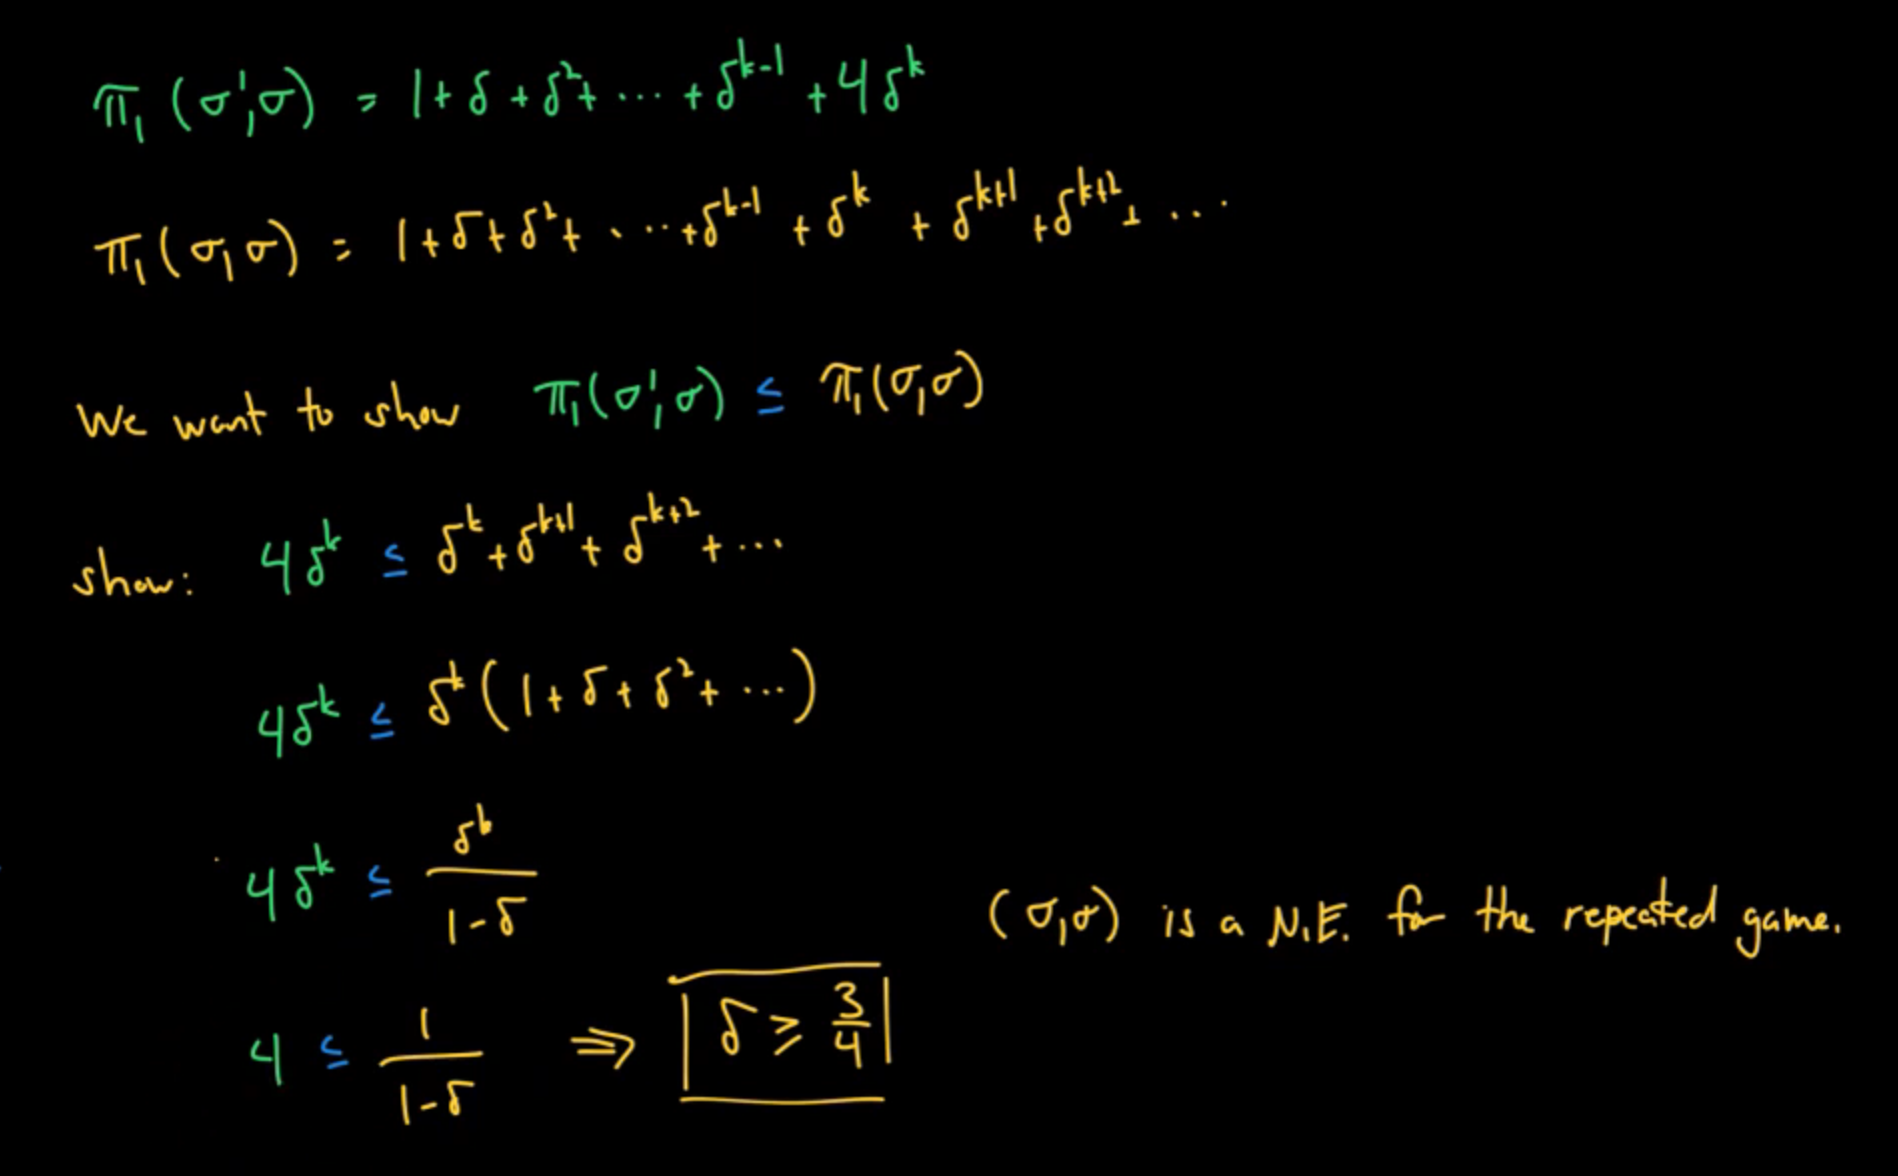 π₁(σ',σ) = 1+δ+δ²+ ⋯ +δᵏ⁻¹ +4δᵏ
π₁(σ,σ) = 1+δ+δ²+ ⋯ +δᵏ⁻¹ + δᵏ + δᵏ⁺¹ + δᵏ⁺² + ⋯
We want to show π₁(σ',σ) ≤ π₁(σ,σ)
show: 4δᵏ ≤ δᵏ+δᵏ⁺¹+ δᵏ⁺² + ⋯
4δᵏ ≤ δᵏ(1+δ+δ²+ ⋯)
4δᵏ ≤ δᵏ/(1-δ)
(σ,σ) is a N.E. for the repeated game.
4 ≤ 1/(1-δ) ⇒ δ ≥ 3/4